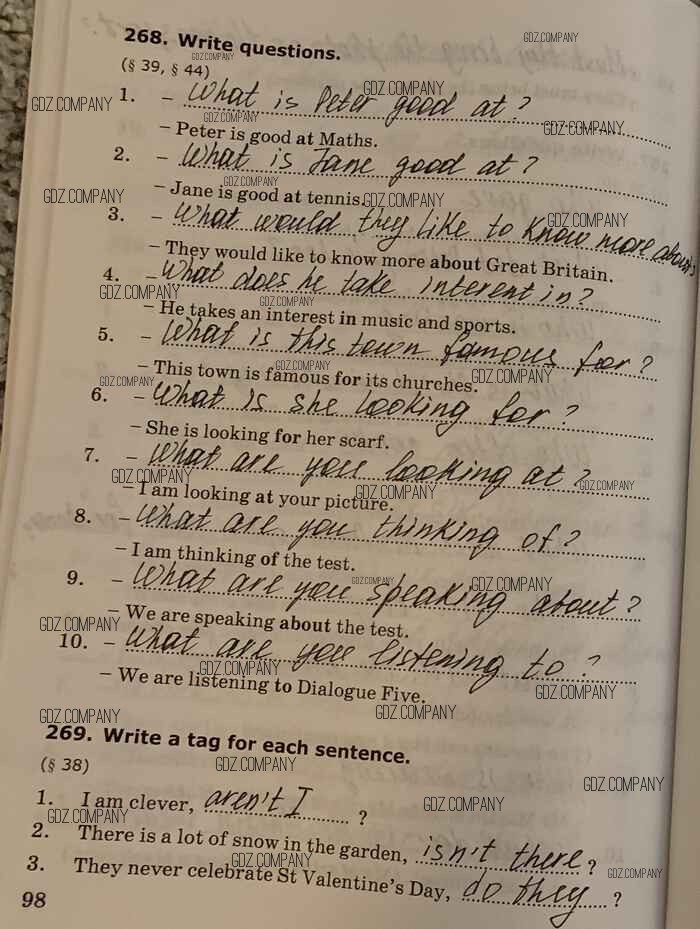 268. Write questions.
(§ 39, § 44)
1. – What is Peter good at?
– Peter is good at Maths.
2. – What is Jane good at?
– Jane is good at tennis.
3. – What would they like to know more about?
– They would like to know more about Great Britain.
4. – What does he take interent in?
– He takes an interest in music and sports.
5. – What is this town famous for?
– This town is famous for its churches.
6. – What is she looking for?
– She is looking for her scarf.
7. – What are you looking at?
– I am looking at your picture.
8. – What are you thinking of?
– I am thinking of the test.
9. – What are you speaking about?
– We are speaking about the test.
10. – What are you listening to?
– We are listening to Dialogue Five.
269. Write a tag for each sentence.
(§ 38)
1. I am clever, aren't I ?
2. There is a lot of snow in the garden, isn't there ?
3. They never celebrate St Valentine's Day, do they ?
98
GDZ.COMPANY